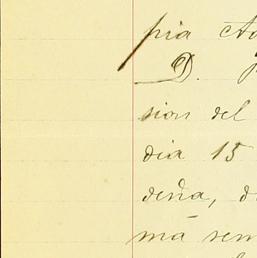 pia
D.
sion del
dia 15
deña, d
má sem